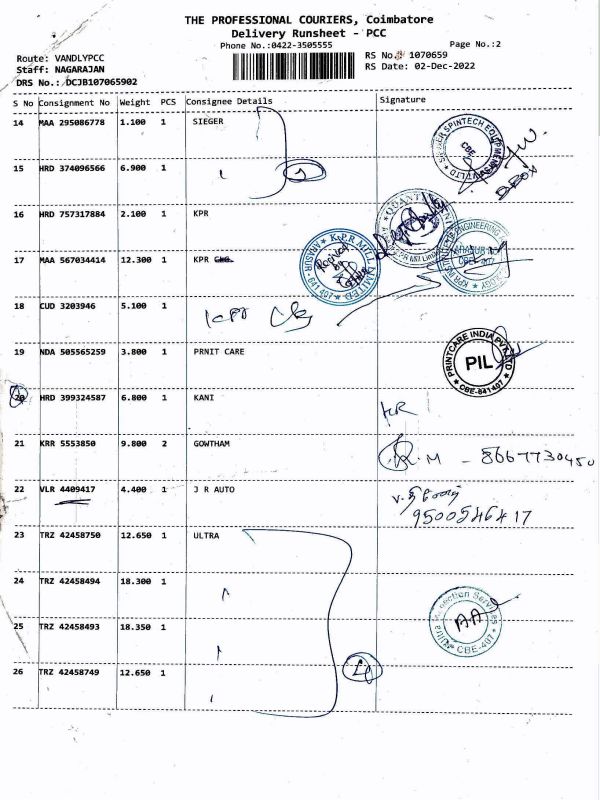 THE PROFESSIONAL COURIERS, Coimbatore
Delivery Runsheet - PCC
Phone No.:0422-3505555
Page No.:2
Route: VANDLYPCC
RS No.: 1070659
Staff: NAGARAJAN
RS Date: 02-Dec-2022
DRS No.: DCJB107065902
S No Consignment No Weight PCS Consignee Details Signature
14 MAA 295086778 1.100 1 SIEGER
15 HRD 374096566 6.900 1
16 HRD 757317884 2.100 1 KPR
17 MAA 567034414 12.300 1 KPR
18 CUD 3203946 5.100 1 KPR
19 NDA 505565259 3.800 1 PRNIT CARE
PRINTCARE INDIA PVT LTD
PIL
CBE-641407
20 HRD 399324587 6.800 1 KANI
21 KRR 5553850 9.800 2 GOWTHAM
R.M - 8667730450
22 VLR 4409417 4.400 1 J R AUTO
9500546417
23 TRZ 42458750 12.650 1 ULTRA
24 TRZ 42458494 18.300 1
25 TRZ 42458493 18.350 1
26 TRZ 42458749 12.650 1